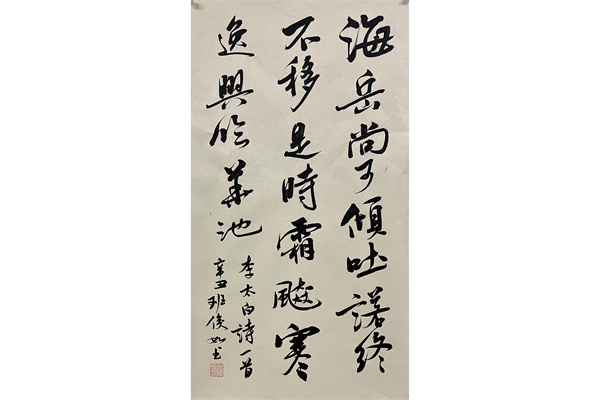 海岳尚可傾吐諾終
不移是時霜飈寒
逸興臨華池
李太白詩一首
辛丑班俊如书